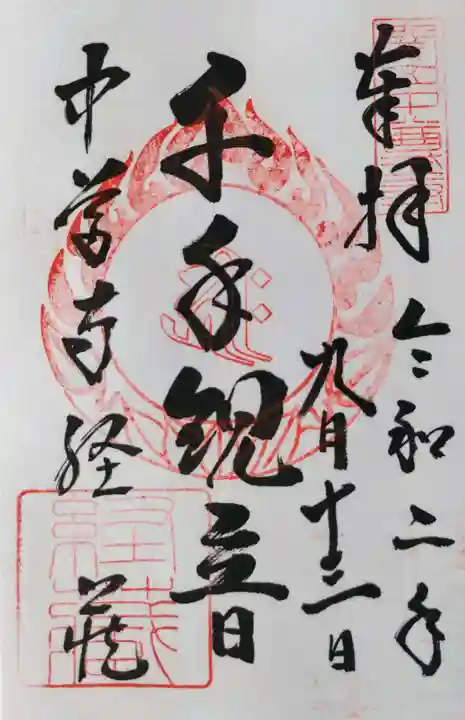 奉拝
令和二年
九月十二日
千手観音
中尊寺経蔵
経蔵